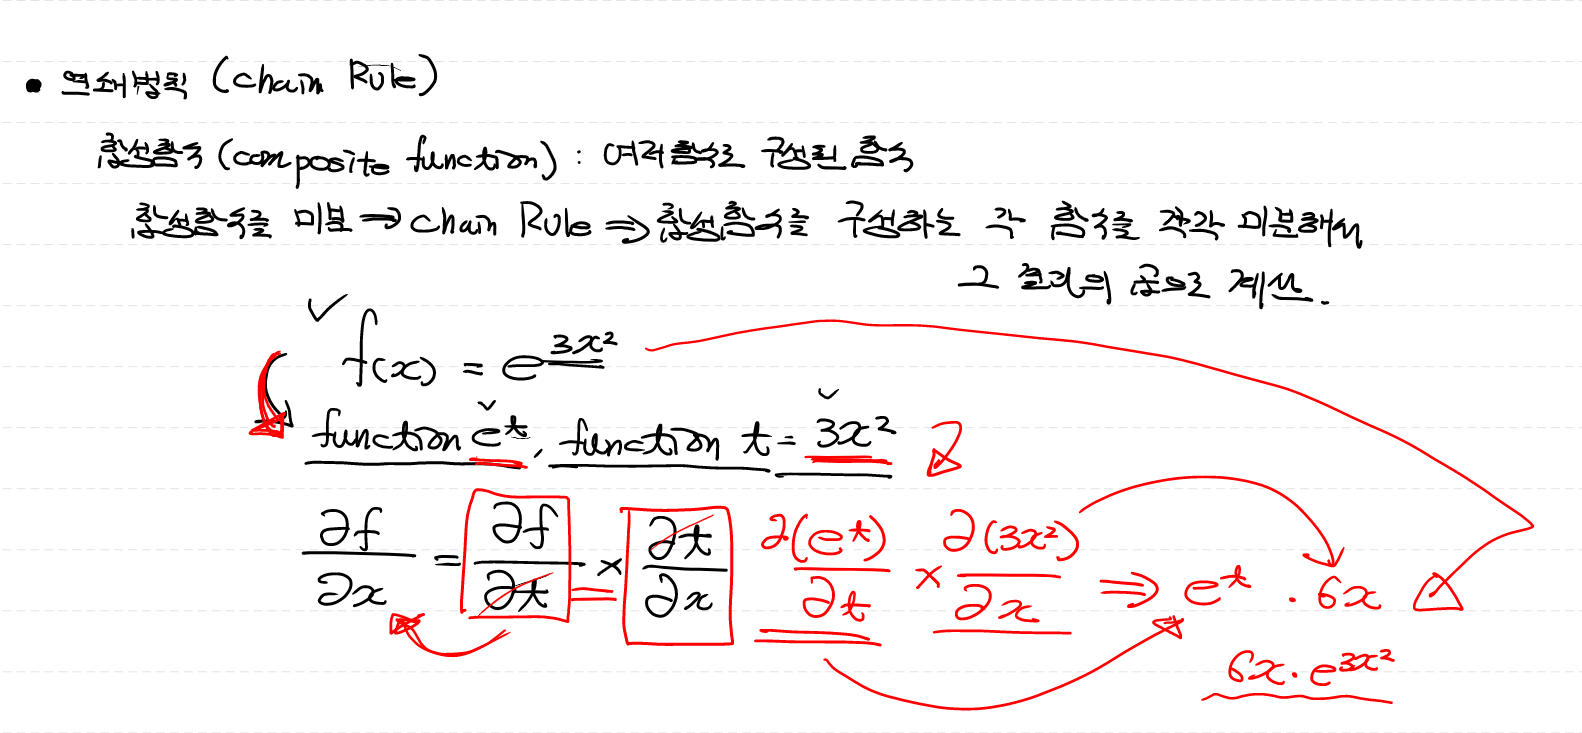 • 연쇄법칙 (chain Rule)
합성함수 (composite function) : 여러함수로 구성된 함수
합성함수를 미분 ⇒ chain Rule ⇒ 합성함수를 구성하는 각 함수를 각각 미분해서
그 결과의 곱으로 계산.
f(x) = e^{3x²}
function e^t, function t = 3x²
∂f/∂x = ∂f/∂t × ∂t/∂x  ∂(e^t)/∂t × ∂(3x²)/∂x ⇒ e^t · 6x
6x · e^{3x²}